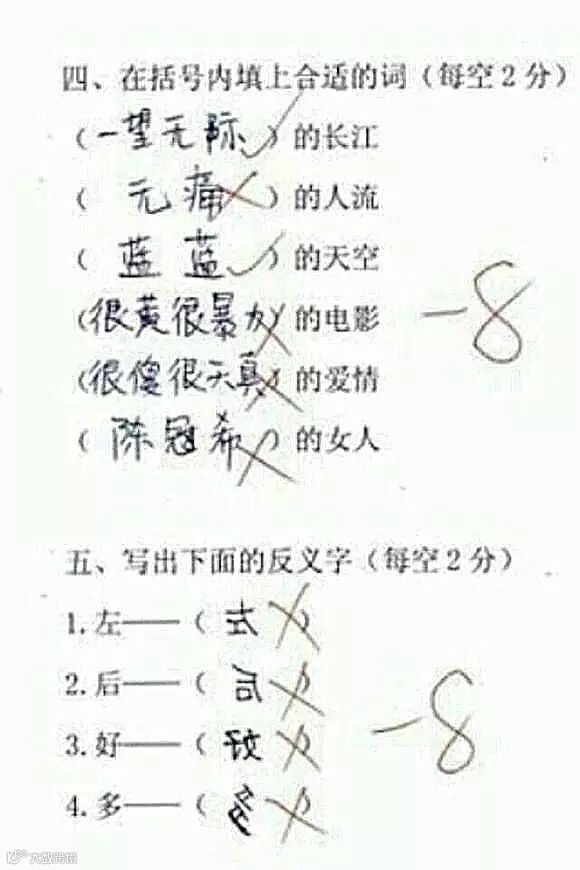 四、在括号内填上合适的词（每空2分）
（一望无际）的长江
（无痛）的人流
（蓝蓝）的天空
（很黄很暴力）的电影
（很傻很天真）的爱情
（陈冠希）的女人
-8
五、写出下面的反义字（每空2分）
1.左——（左）
2.后——（后）
3.好——（好）
4.多——（多）
-8